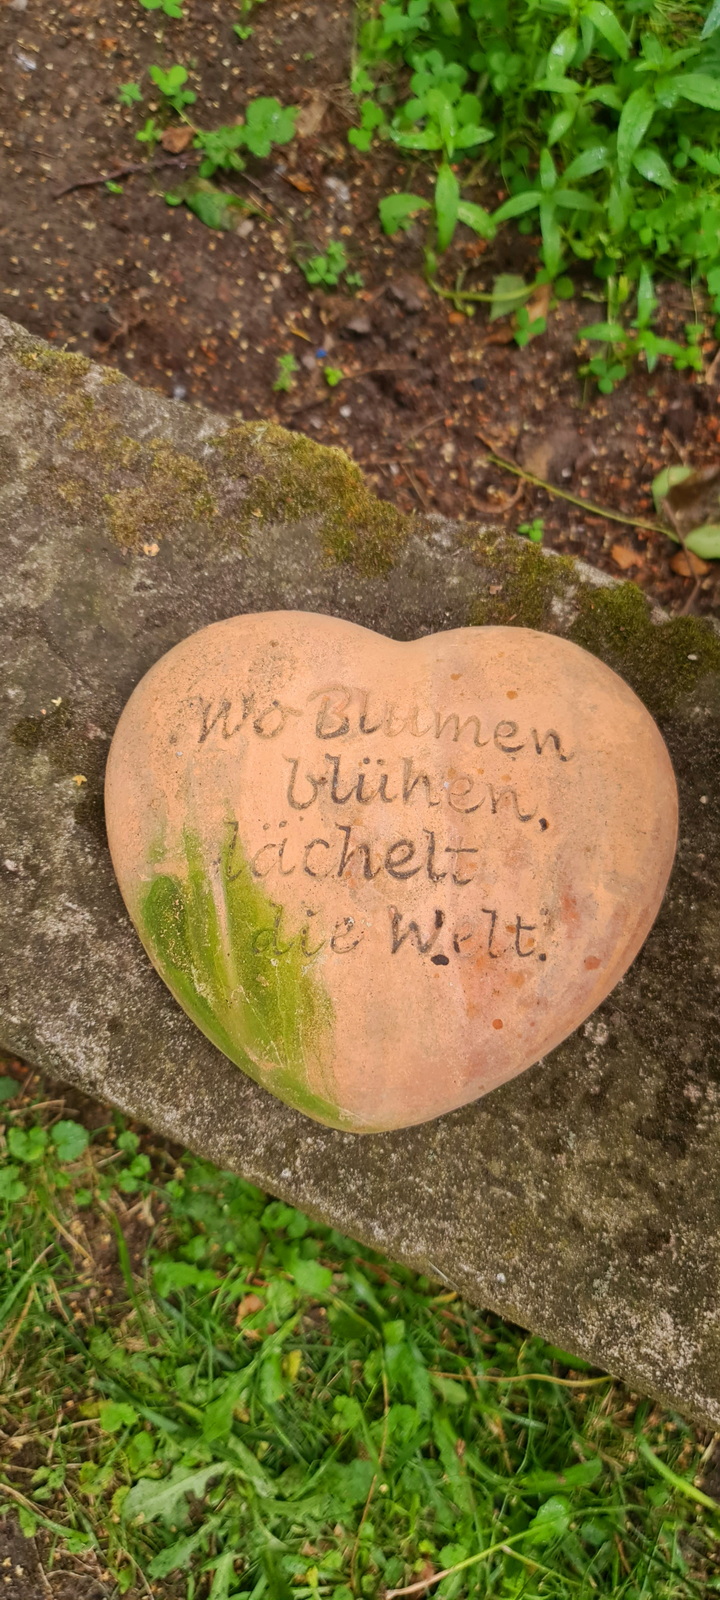 Wo Blumen
blühen,
lächelt
die Welt.